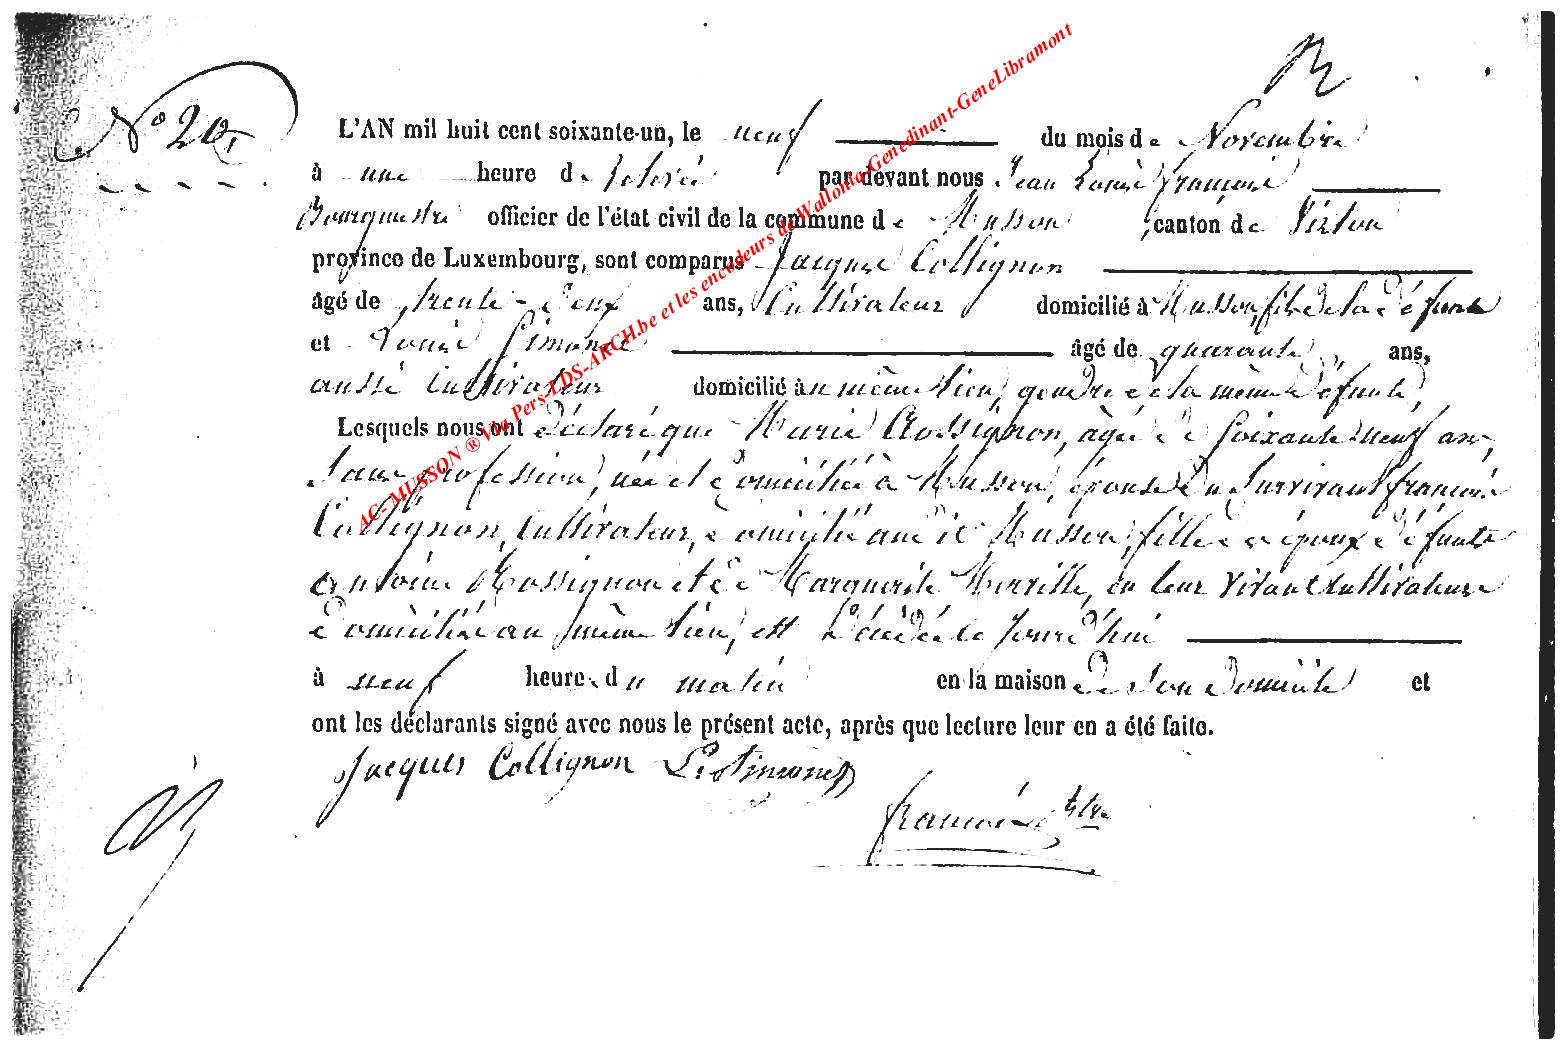 N° 20,
L'AN mil huit cent soixante-un, le neuf du mois de Novembre
à une heure de relevée par devant nous Jean Louis françois
Bourgmestre officier de l'état civil de la commune de Musson canton de Virton
province de Luxembourg, sont comparus Jacques Collignon
âgé de trente-neuf ans, Cultivateur domicilié à Musson, fils de la défunte
et Louis Simonet âgé de quarante ans,
aussi Cultivateur domicilié au même lieu, gendre de la même défunte,
Lesquels nous ont déclaré que Marie Rossignon, âgée de soixante neuf ans,
Sans profession, née et domiciliée à Musson, épouse du Survivant françois
Collignon, Cultivateur, domicilié au dit Musson, fille des époux défunts
antoine Rossignon et de Marguerite, en leur vivant Cultivateurs
domiciliés au même lieu, est décédée le Jourd'hui
à neuf heures du matin en la maison de son domicile et
ont les déclarants signé avec nous le présent acte, après que lecture leur en a été faite.
Jacques Collignon L. Simonet
françois
AC- MUSSON ® Via Pers-LDS-ARCH.be et les encodeurs de Wallonia-Genedinant-GeneLibramont